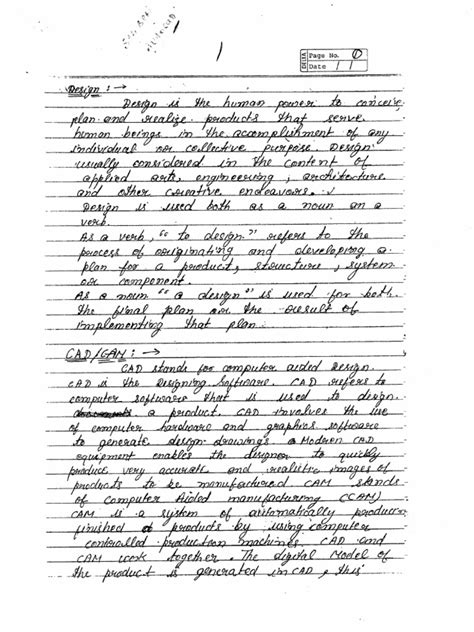 1
DESIA
Page No. 1
Date / /
Design : →
Design is the human power to conceive,
plan and realize products that serve
human beings in the accomplishment of any
individual or collective purpose. Design
usually considered in the content of
applied arts, engineering, architecture
and other creative endeavors.
Design is used both as a noun an a
verb.
As a verb, "to design" refers to the
process of originating and developing a
plan for a product, structure, system
or component.
As a noun "a design" is used for both
the final plan or the result of
implementing that plan.
CAD/CAM : →
CAD stands for computer aided Design.
CAD is the Designing Software. CAD refers to
computer software that is used to design
a product. CAD involves the use
of computer hardware and graphics software
to generate design drawings. Modern CAD
equipment enables the designer to quickly
produce very accurate and realistic images of
products to be manufactured CAM stands
of Computer Aided manufacturing (CAM)
CAM is a system of automatically
finished products by using computer
controlled production machines CAD and
CAM work together. The digital Model of
the product is generated in CAD, this